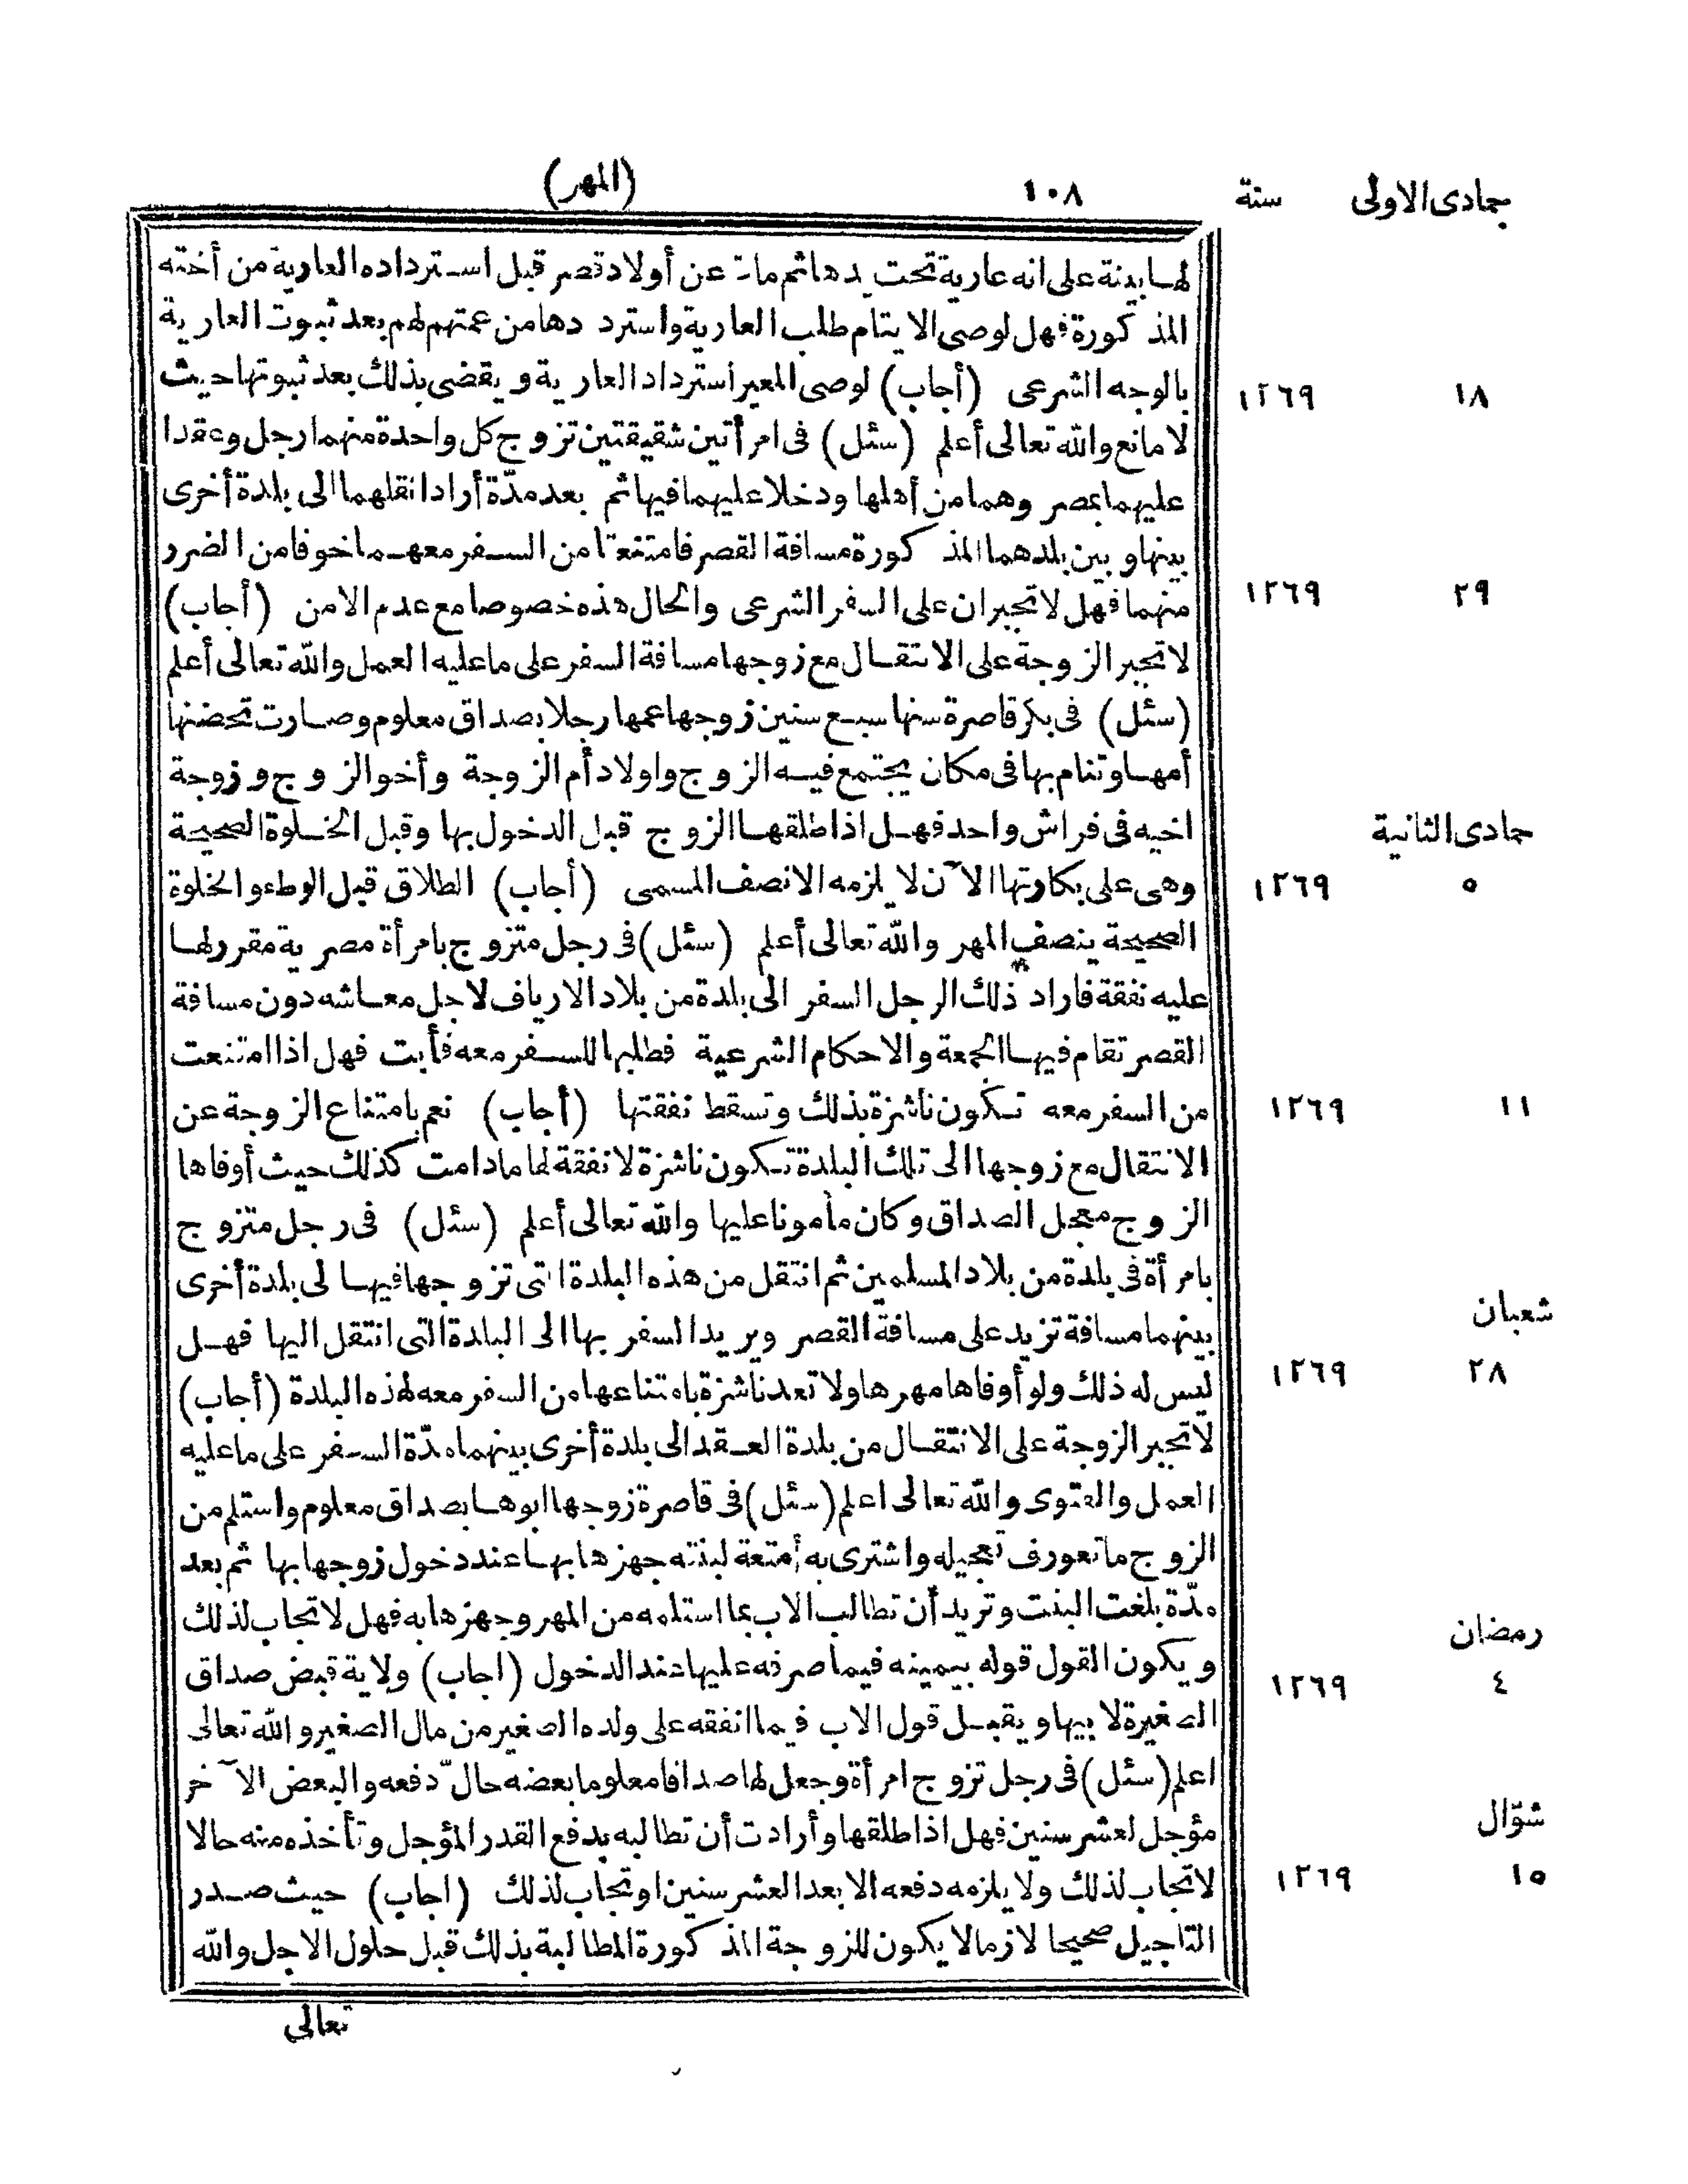 جمادى الاولى سنة ١٠٨ (المهر)
لها بينة على انه عارية تحت يدها ثم مات عن أولاد قصر قبل استرداده العارية من أخته
المذكورة فهل لوصى الايتام طلب العارية واستردادها من عمتهم لهم بعد ثبوت العارية
١٨ ١٢٦٩ بالوجه الشرعى (أجاب) لوصى المعير استرداد العارية ويقضى بذلك بعد ثبوتها حيث
لا مانع والله تعالى أعلم (سئل) فى امرأتين شقيقتين تزوج كل واحدة منهما رجل وعقدا
عليهما بمصر وهما من أهلها ودخلا عليهما فيها ثم بعد مدّة أرادا نقلهما الى بلدة أخرى
بينها وبين بلدهما المذكورة مسافة القصر فامتنعتا من السفر معهما خوفا من الضرر
٢٩ ١٢٦٩ منهما فهل لا تجبران على السفر الشرعى والحال هذه خصوصا مع عدم الامن (أجاب)
لا تجبر الزوجة على الانتقال مع زوجها مسافة السفر على ما عليه العمل والله تعالى أعلم
(سئل) فى بكر قاصرة سنها سبع سنين زوجها عمها رجلا بصداق معلوم وصارت تحضنها
أمها وتنام بها فى مكان يجتمع فيه الزوج واولاد أم الزوجة وأخو الزوج وزوجة
جمادى الثانية اخيه فى فراش واحد فهل اذا طلقها الزوج قبل الدخول بها وقبل الخلوة الصحيحة
٥ ١٢٦٩ وهى على بكارتها الآن لا يلزمه الا نصف المسمى (أجاب) الطلاق قبل الوطء والخلوة
الصحيحة ينصف المهر والله تعالى أعلم (سئل) فى رجل متزوج بامرأة مصرية مقرر لها
عليه نفقة فاراد ذلك الرجل السفر الى بلدة من بلاد الارياف لاجل معاشه دون مسافة
القصر تقام فيها الجمعة والاحكام الشرعية فطلبها للسفر معه فأبت فهل اذا امتنعت
١١ ١٢٦٩ من السفر معه تكون ناشزة بذلك وتسقط نفقتها (أجاب) نعم بامتناع الزوجة عن
الانتقال مع زوجها الى تلك البلدة تكون ناشزة لا نفقة لها ما دامت كذلك حيث أوفاها
الزوج معجل الصداق وكان مأمونا عليها والله تعالى أعلم (سئل) فى رجل متزوج
بامرأة فى بلدة من بلاد المسلمين ثم انتقل من هذه البلدة التى تزوجها فيها لى بلدة أخرى
شعبان بينهما مسافة تزيد على مسافة القصر ويريد السفر بها الى البلدة التى انتقل اليها فهل
٢٨ ١٢٦٩ ليس له ذلك ولو أوفاها مهرها ولا تعد ناشزة بامتناعها من السفر معه لهذه البلدة (أجاب)
لا تجبر الزوجة على الانتقال من بلدة العقد الى بلدة أخرى بينهما مدّة السفر على ما عليه
العمل والفتوى والله تعالى اعلم (سئل) فى قاصرة زوجها ابوها بصداق معلوم واستلم من
الزوج ما تعورف تعجيله واشترى به أمتعة لبنته جهزها بها عند دخول زوجها بها ثم بعد
مدّة بلغت البنت وتريد أن تطالب الاب بما استلمه من المهر وجهزها به فهل لا تجاب لذلك
رمضان ويكون القول قوله بيمينه فيما صرفه عليها عند الدخول (اجاب) ولاية قبض صداق
٤ ١٢٦٩ الصغيرة لابيها ويقبل قول الاب فيما انفقه على ولده الصغير من مال الصغير والله تعالى
اعلم (سئل) فى رجل تزوج امرأة وجعل لها صداقا معلوما بعضه حالّ دفعه والبعض الآخر
شوّال مؤجل لعشر سنين فهل اذا طلقها وأرادت أن تطالبه بدفع القدر المؤجل وتأخذه منه حالا
١٥ ١٢٦٩ لا تجاب لذلك ولا يلزمه دفعه الا بعد العشر سنين او تجاب لذلك (اجاب) حيث صدر
التاجيل صحيحا لازما لا يكون للزوجة المذكورة المطالبة بذلك قبل حلول الاجل والله
تعالى